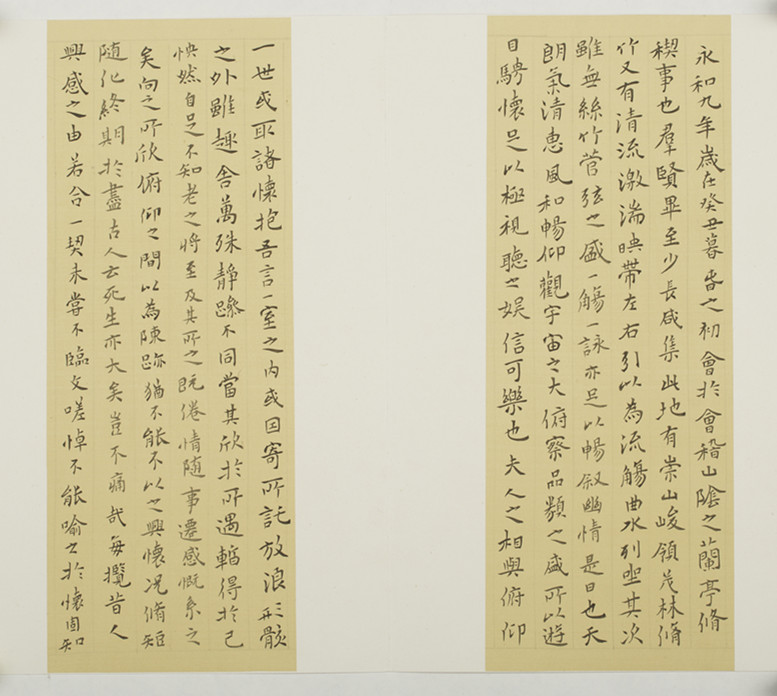 永和九年歲在癸丑暮春之初會於會稽山陰之蘭亭脩
禊事也羣賢畢至少長咸集此地有崇山峻領茂林脩
竹又有清流激湍暎帶左右引以為流觴曲水列坐其次
雖無絲竹管弦之盛一觴一詠亦足以暢叙幽情是日也天
朗氣清惠風和暢仰觀宇宙之大俯察品類之盛所以遊
目騁懷足以極視聽之娛信可樂也夫人之相與俯仰
一世或取諸懷抱吾言一室之内或因寄所託放浪形骸
之外雖趣舍萬殊靜躁不同當其欣於所遇暫得於己
怏然自足不知老之將至及其所之既倦情隨事遷感慨系之
矣向之所欣俯仰之間以為陳跡猶不能不以之興懷況脩短
隨化終期於盡古人云死生亦大矣豈不痛哉每攬昔人
興感之由若合一契未嘗不臨文嗟悼不能喻之於懷固知